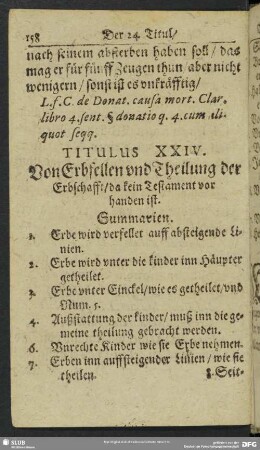 158 Der 24. Titul/
nach seinem absterben haben soll/ das
mag er für fünff Zeugen thun/ aber nicht
wenigern/ sonst ist es unkräfftig/
L. s. C. de Donat. causa mort. Clar.
libro 4. sent. § donatio q. 4. cum ali-
quot seqq.
TITULUS XXIV.
Von Erbfellen vnd Theilung der
Erbschafft/ da kein Testament vor
handen ist.
Summarien.
1. Erbe wird verfellet auff absteigende Li-
nien.
2. Erbe wird vnter die kinder inn Häupter
getheilet.
3. Erbe vnter Einckel/ wie es getheilet/ vnd
Num. 5.
4. Außstattung der kinder/ muß inn die ge-
meine theilung gebracht werden.
6. Vnrechte Kinder wie sie Erbe nehmen.
7. Erben inn auffsteigender Linien/ wie sie
theilen.
8. Seit-
SLUB
DFG